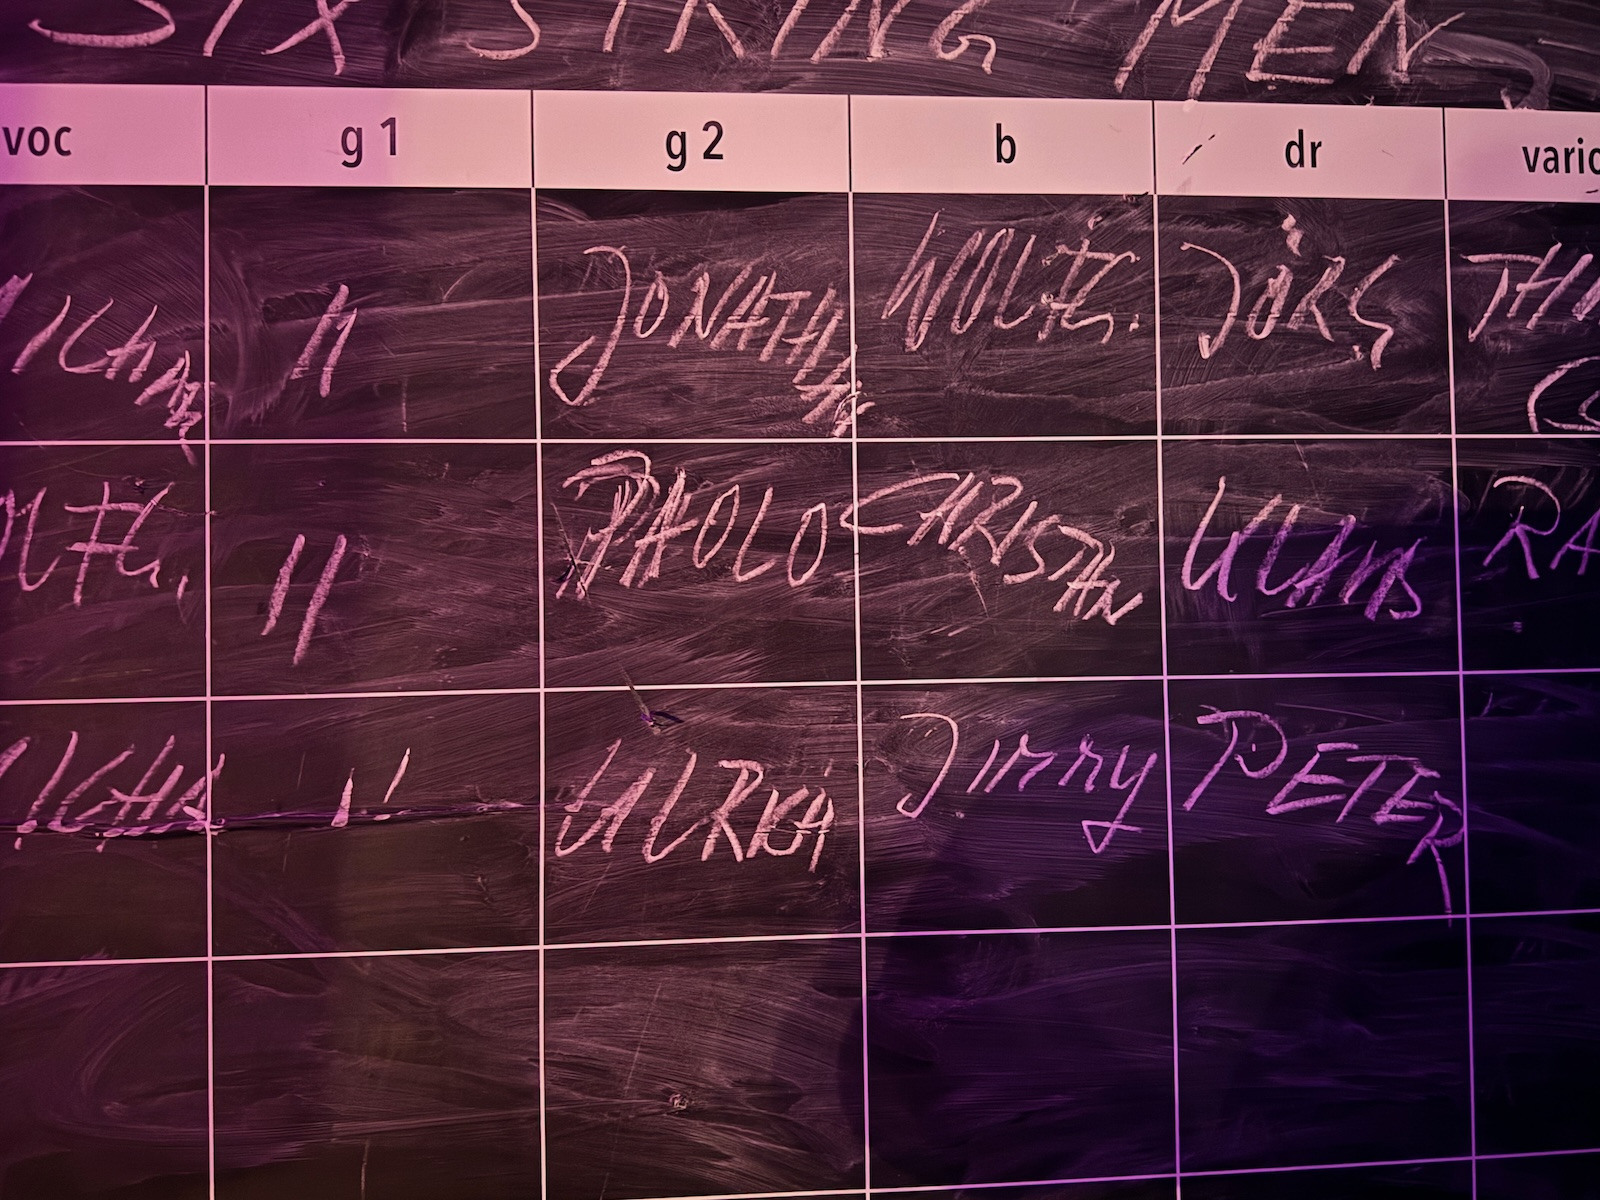 SIX STRING MEN
voc g 1 g 2 b dr vario
ICHAEL " JONATHAN WOLFG. JÖRG THO
LFG. " PAOLO CHRISTIAN KLAUS RA
ICHA " ULRICH Jimmy PETER